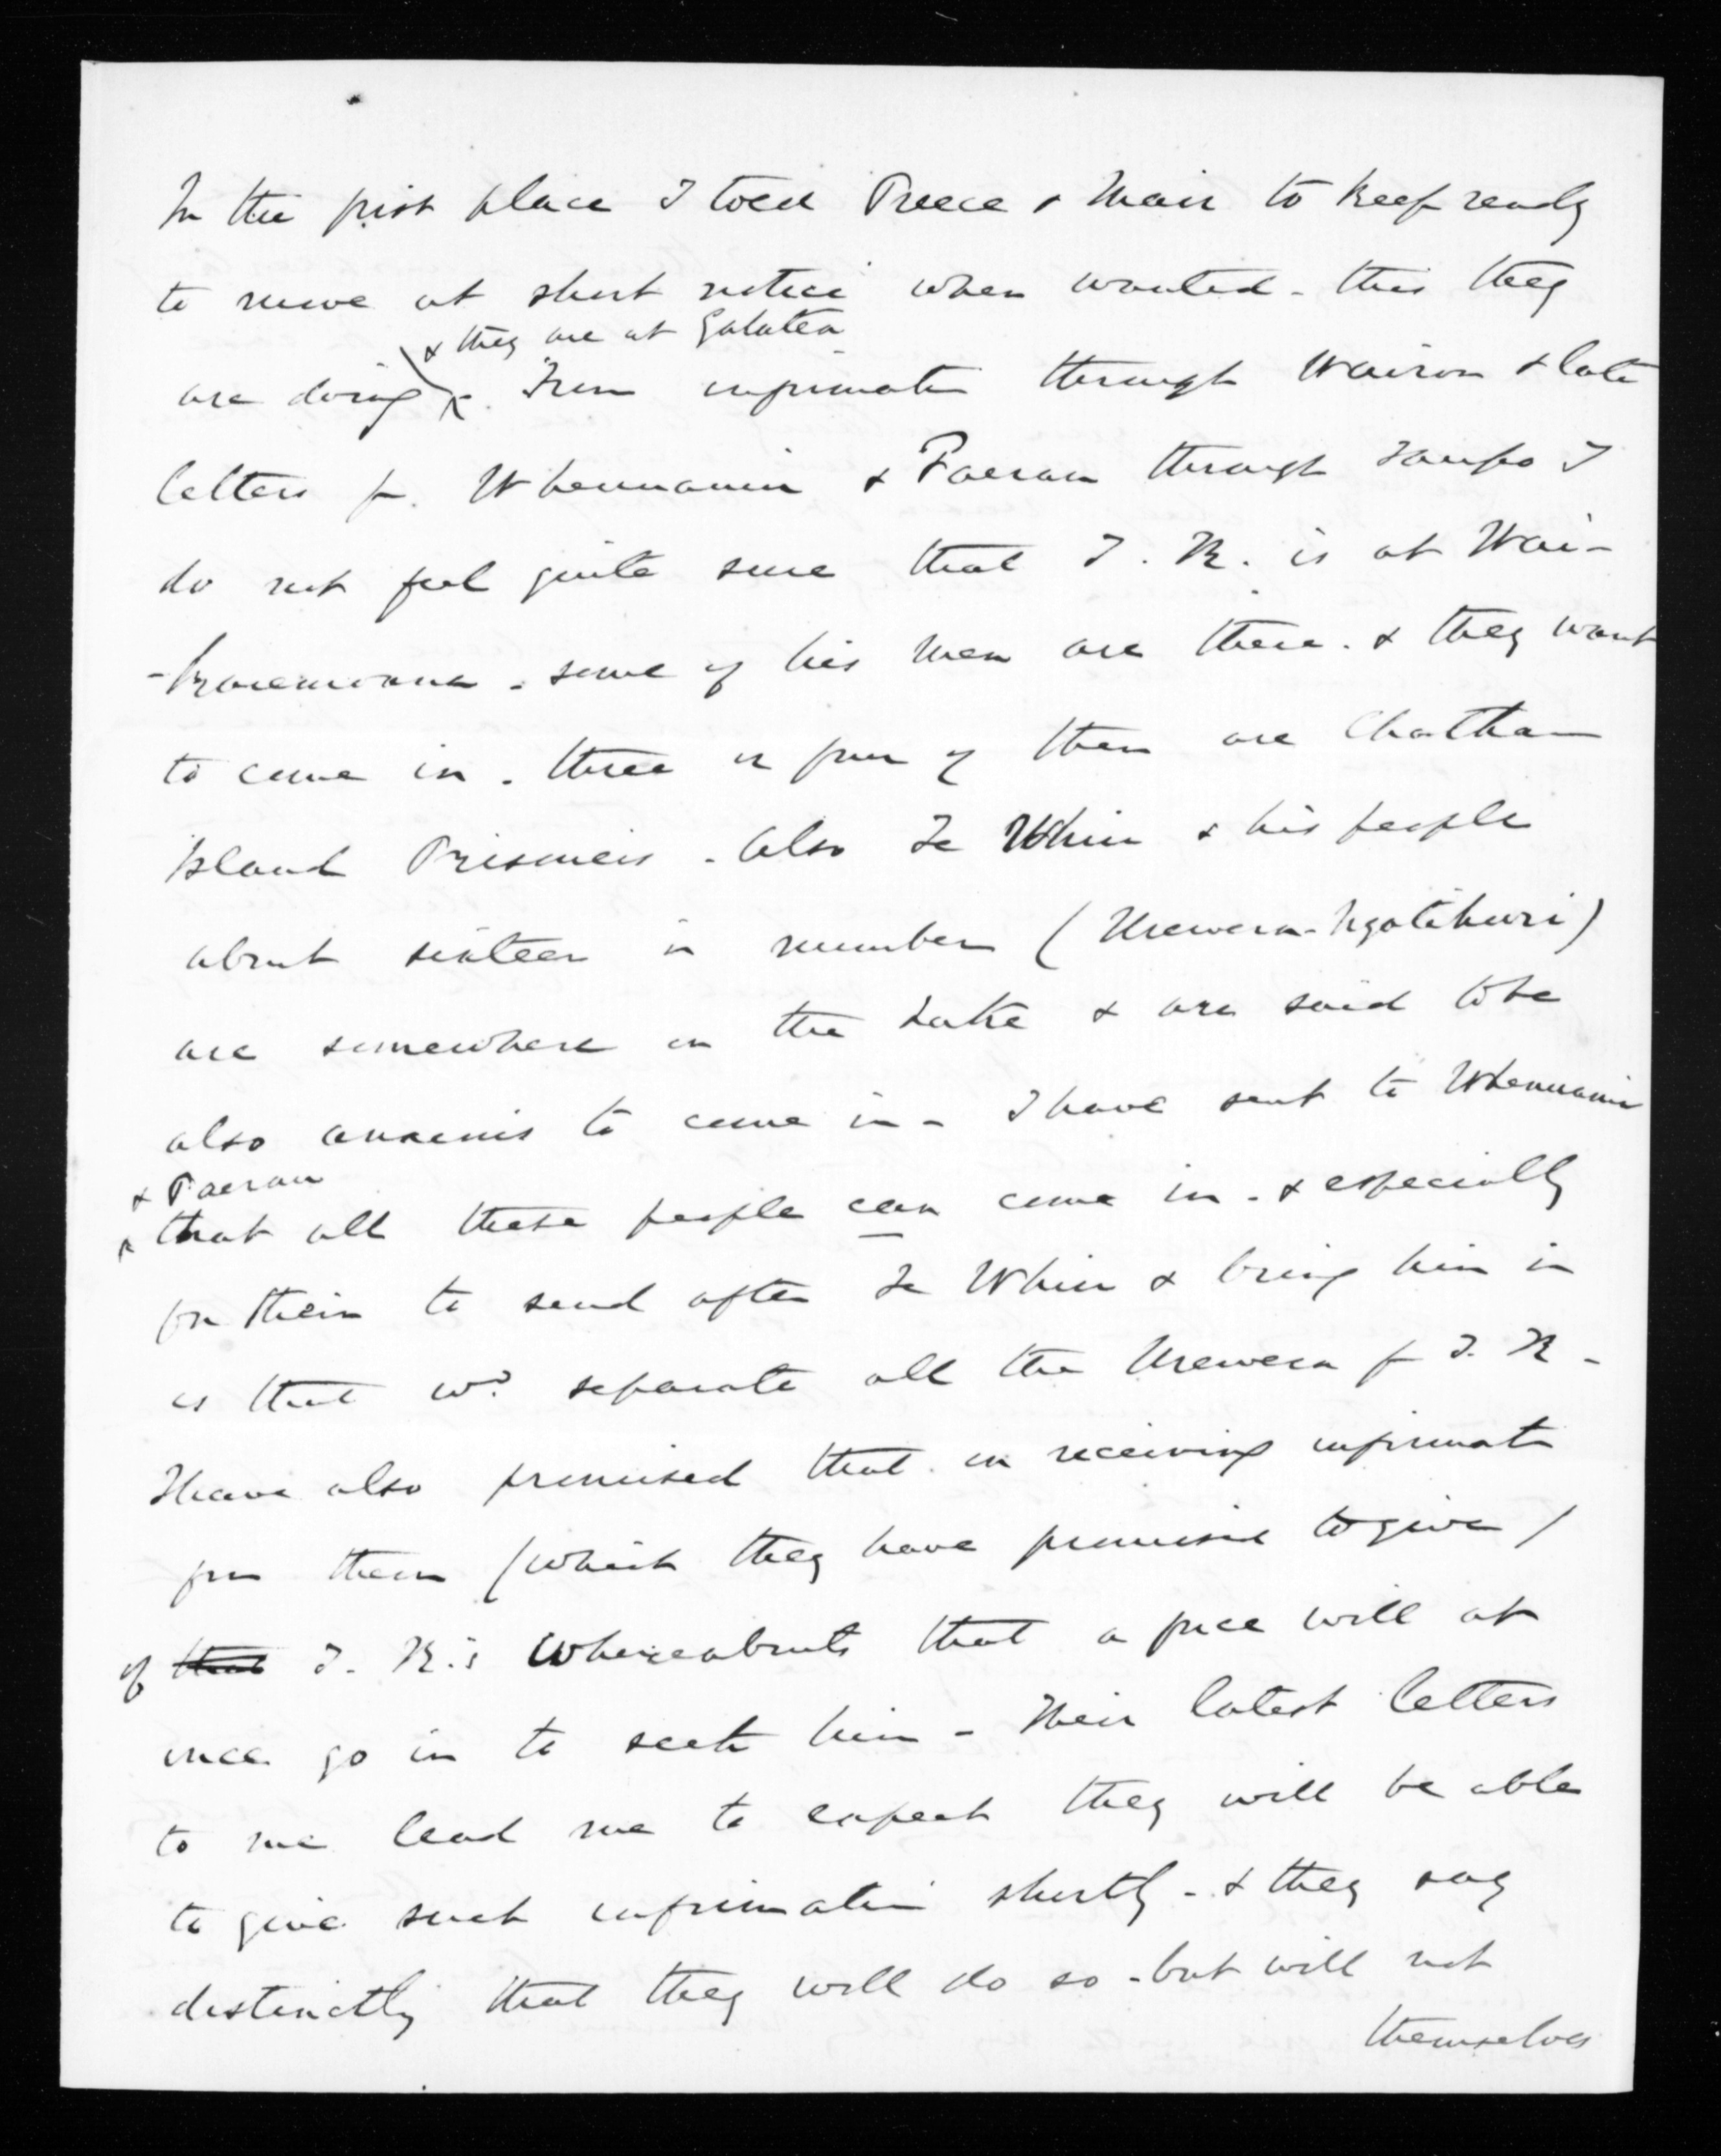 In the first place I told Preece & Mair to keep ready
to move at short notice when wanted - this they
& they are at Galatea
are doing. From informatn through Wairoa & late
letters fr. Whenuanui & Paerau through Taupo I
do not feel quite sure that T. K. is at Wai-
-karemoana - some of his men are there. & they want
to come in. three or four of them are Chatham
Island Prisoners - Also Te Whiu & his people
about sixteen in number (Urewera - Ngatihuri)
are somewhere on the Lake & are said to be
also anxious to come in - I have sent to Whenuanui
& Paerau
that all these people can come in - & especially
for them to send after Te Whiu & bring him in
as that wd. separate all the Urewera fr T. K -
I have also promised that on receiving informatn
from them (which they have promised to give)
of that T. K.'s whereabouts that a force will at
once go in to seek him - Their latest letters
to me lead me to expect they will be able
to give such information shortly - & they say
distinctly that they will do so - but will not
themselves